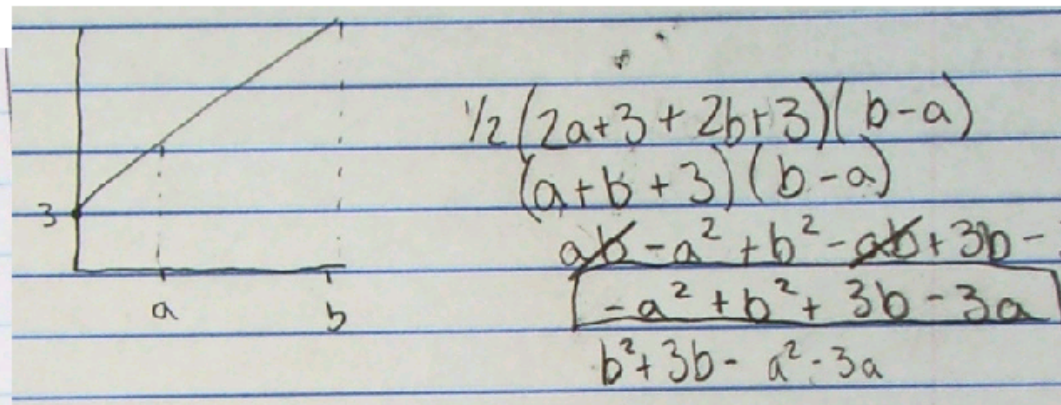 1/2(2a+3+2b+3)(b-a)
(a+b+3)(b-a)
3
ab-a²+b²-ab+3b-
-a²+b²+3b-3a
a
b
b²+3b-a²-3a